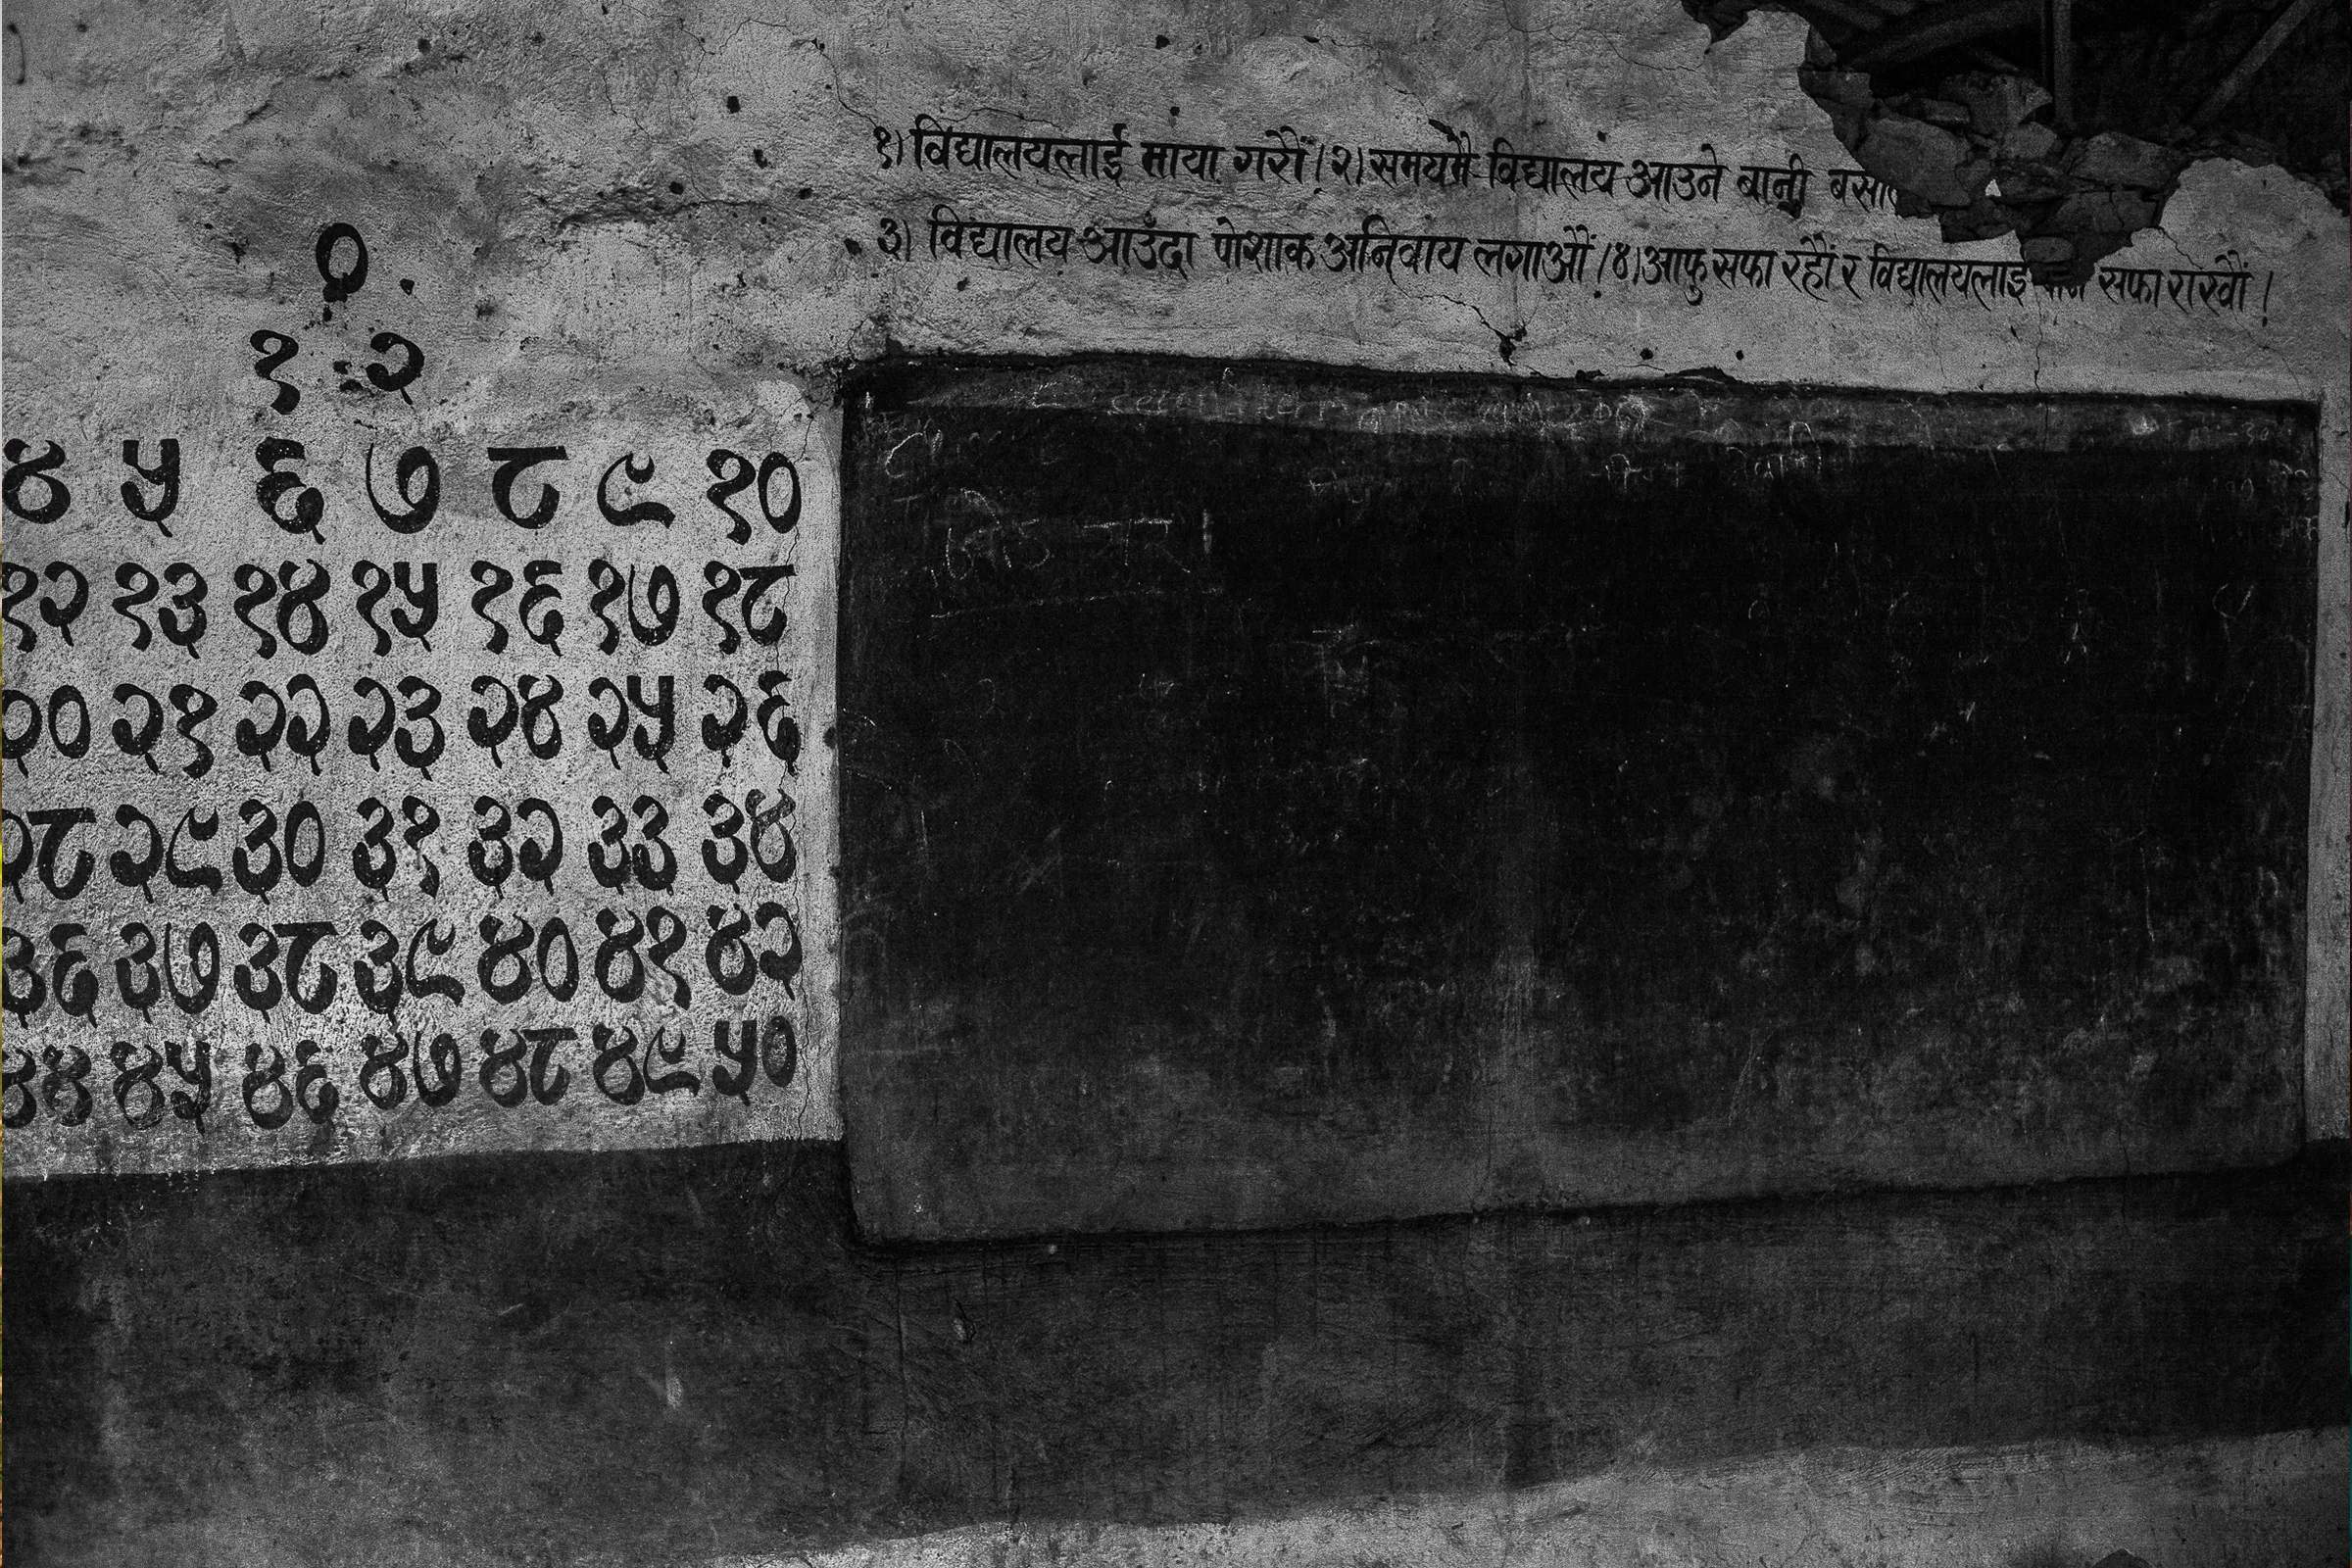 १) विद्यालयलाई माया गरौं । २) समयमै विद्यालय आउने बानी
३) विद्यालय आउँदा पोशाक अनिवाय लगाऔं । ४) आफु सफा रहौं र विद्यालयलाई सफा राखौं ।
०
१ २
४ ५ ६ ७ ८ ९ १०
१२ १३ १४ १५ १६ १७ १८
२० २१ २२ २३ २४ २५ २६
२८ २९ ३० ३१ ३२ ३३ ३४
३६ ३७ ३८ ३९ ४० ४१ ४२
४४ ४५ ४६ ४७ ४८ ४९ ५०